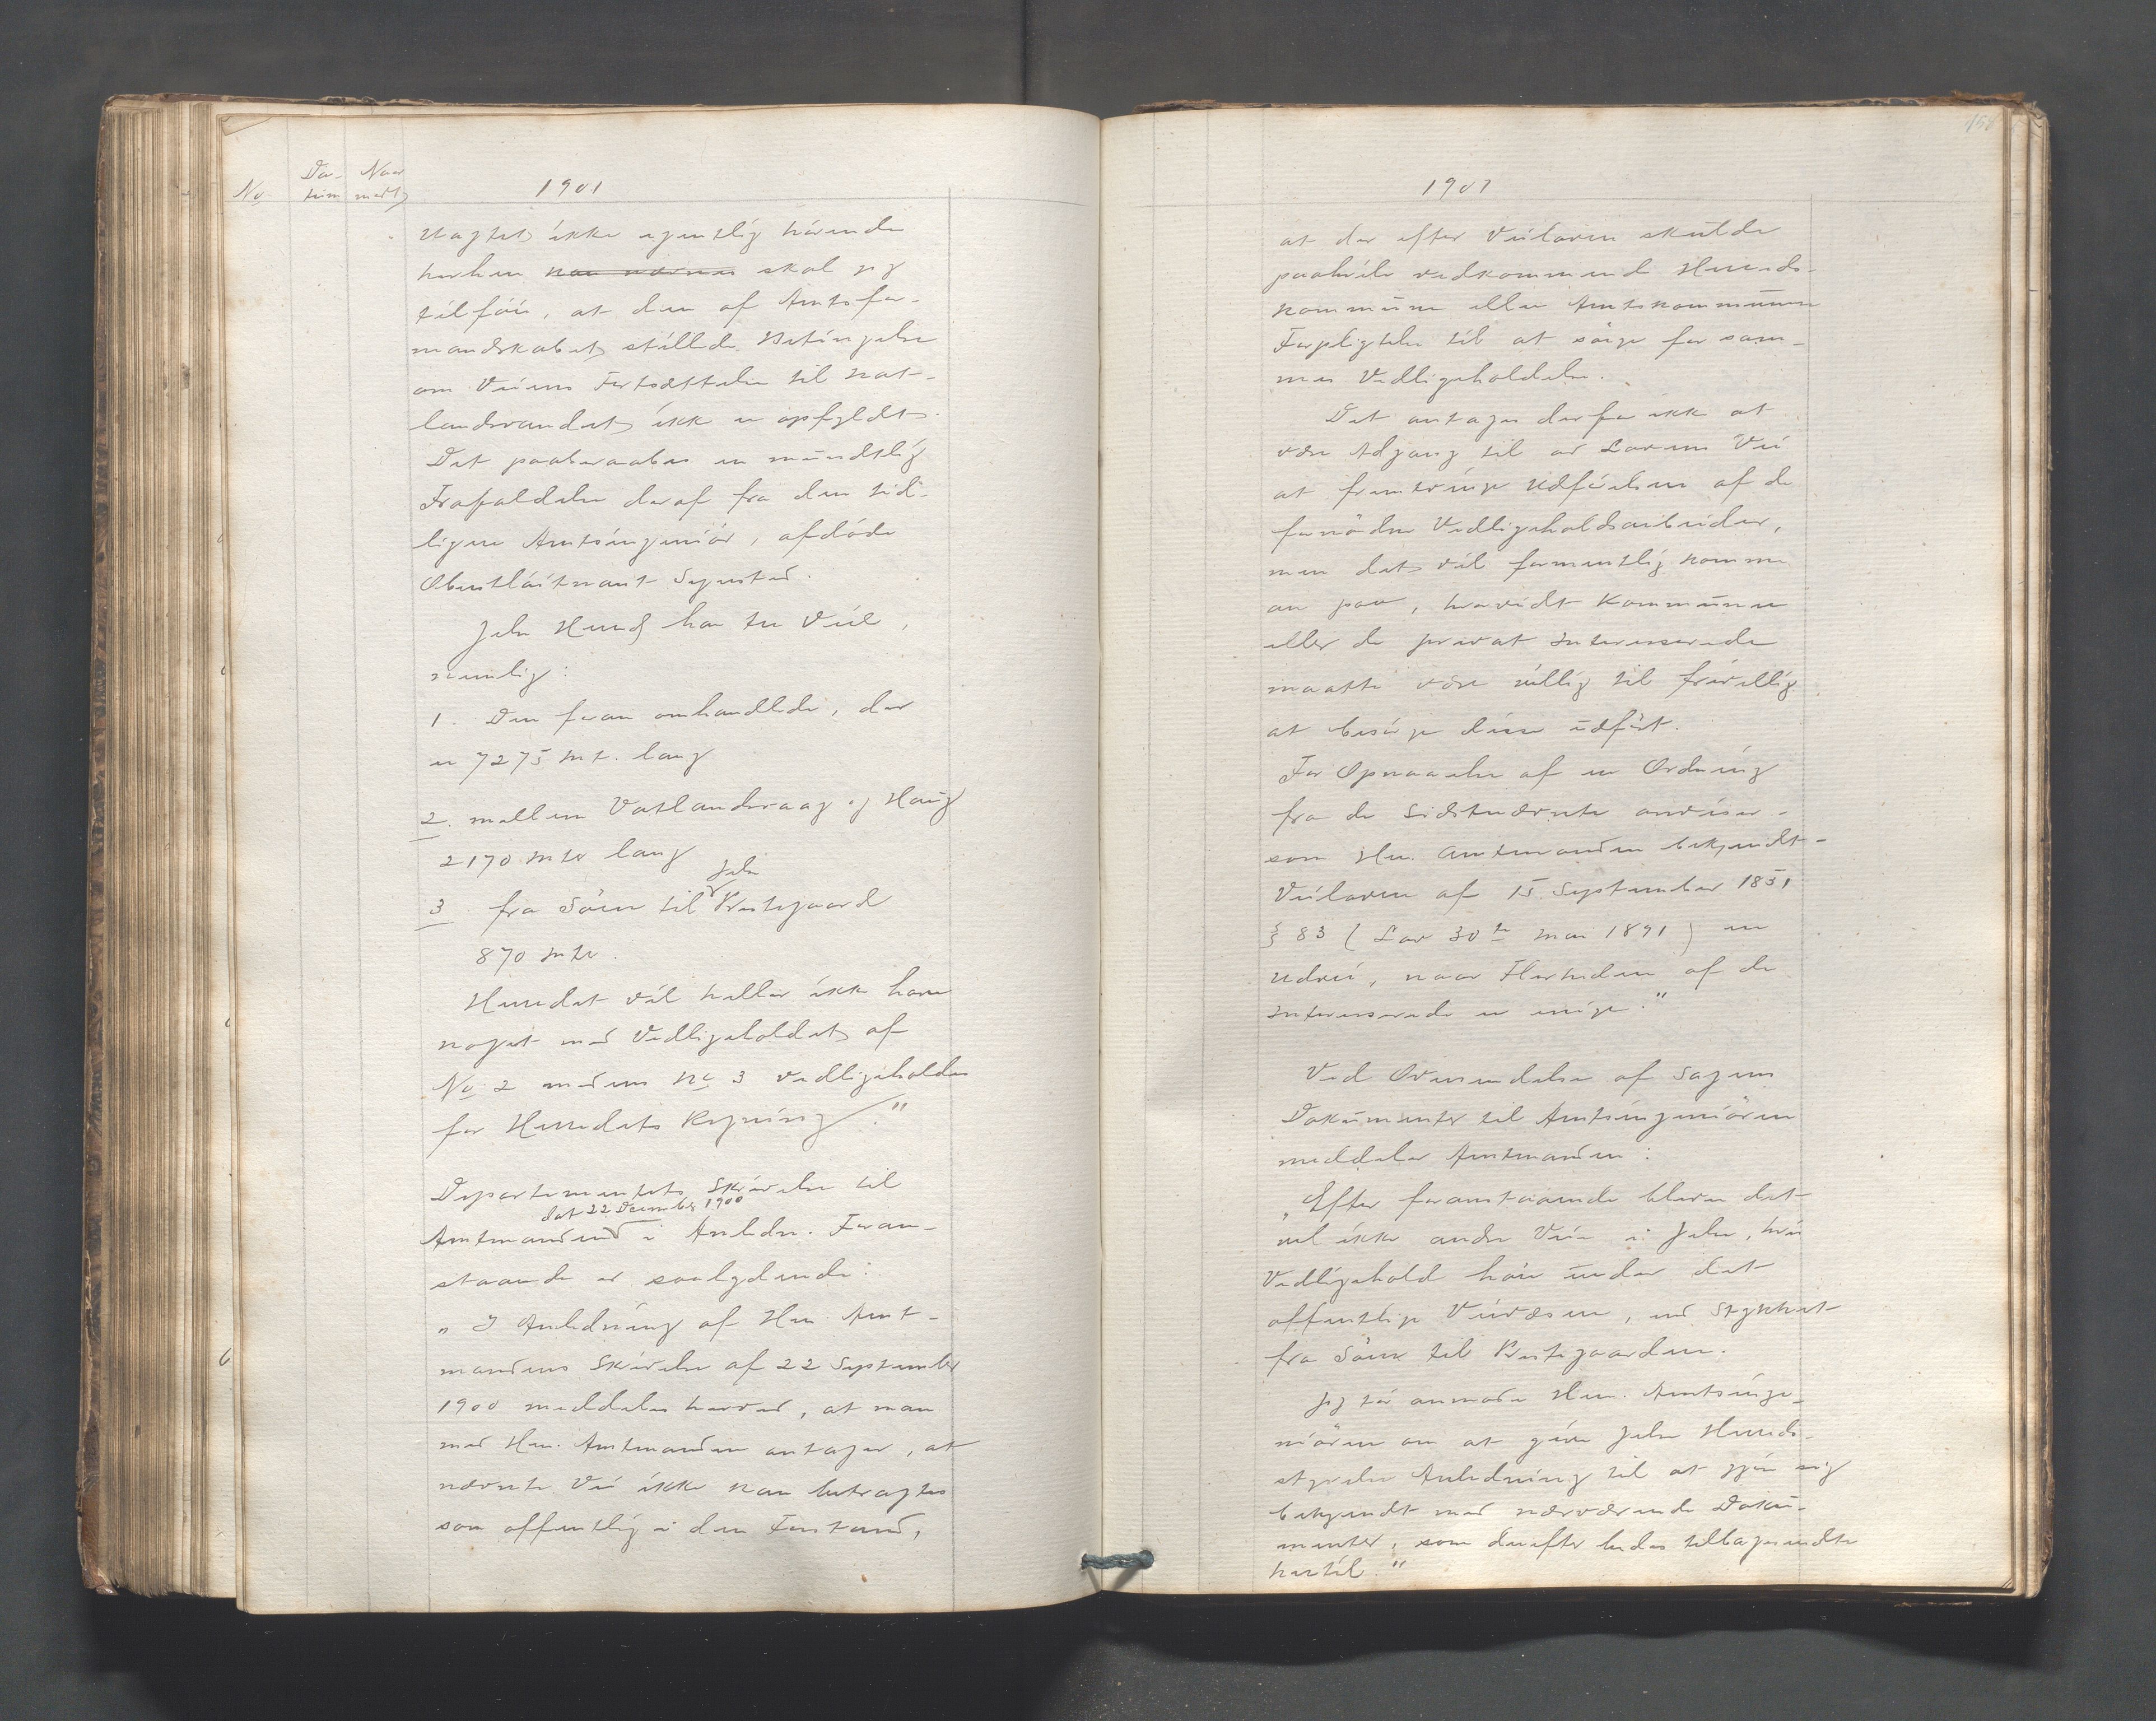 No
Da-
tum
Naar
modt
1901
Uagtet ikke egentlig hørende
herhen kan nævnes skal jeg
tilføie, at den af Amtsfor-
mandskabet stillede Betingelse
om Veiens Fortsættelse til Nat-
landsvandet ikke er opfyldt.
Det paaberaabes en mundtlig
Frafaldelse deraf fra den tid-
ligere Amtsingeniør, afdøde
Oberstløitnant
Jelse Herred har tre Veie,
nemlig:
1. Den foran omhandlede, der
er 7275 mt. lang
2. mellem Vatlandsvaag og Haug
2170 mtr lang
3 fra Søen til Jelse Prestegaard
870 mtr.
Herredet vil heller ikke have
noget med Vedligeholdet af
No 2 medens No 3 vedligeholdes
for Herredets Regning."
Departementets Skrivelse til
dat 22 December 1900
Amtmanden i Anledn. Foran-
staaende er saalydende:
"I Anledning af Hr. Amt-
mandens Skrivelse af 22 September
1900 meddeles herved, at man
med Hr. Amtmanden antager, at
nævnte Vei ikke kan betragtes
som offentlig i den Forstand,
1901
at der efter Veiloven skulde
paahvile vedkommende Herreds-
kommune eller Amtskommunen
Forpligtelse til at sørge for sam-
mes Vedligeholdelse.
Det antages derfor ikke at
være Adgang til ad Lovens Vei
at fremtvinge Udførelsen af de
fornødne Vedligeholdsarbeider,
men det vil formentlig komme
an paa, hvorvidt Kommunen
eller de privat Interesserede
maatte være villig til frivillig
at besørge disse udført.
For Opnaaelse af en Ordning
fra de Sidstnævnte anviser -
som Hr. Amtmanden bekjendt -
Veiloven af 15 September 1851
§ 83 (Lov 30te Mai 1891) en
Udvei, naar Flerheden af de
Interesserede er enige."
Ved Oversendelse af Sagens
Dokumenter til Amtsingeniøren
meddeler Amtmanden:
"Efter foranstaaende bliver det
vel ikke andre Veie i Jelse, hvis
Vedligehold hører under det
offentlige Veivæsen, end Stykket
fra Søen til Prestegaarden.
Jeg tør anmode Hr. Amtsinge-
niøren om at give Jelse Herreds-
styrelse Anledning til at gjøre sig
bekjendt med nærværende Doku-
menter, som derefter bedes tilbagesendte
hertil."